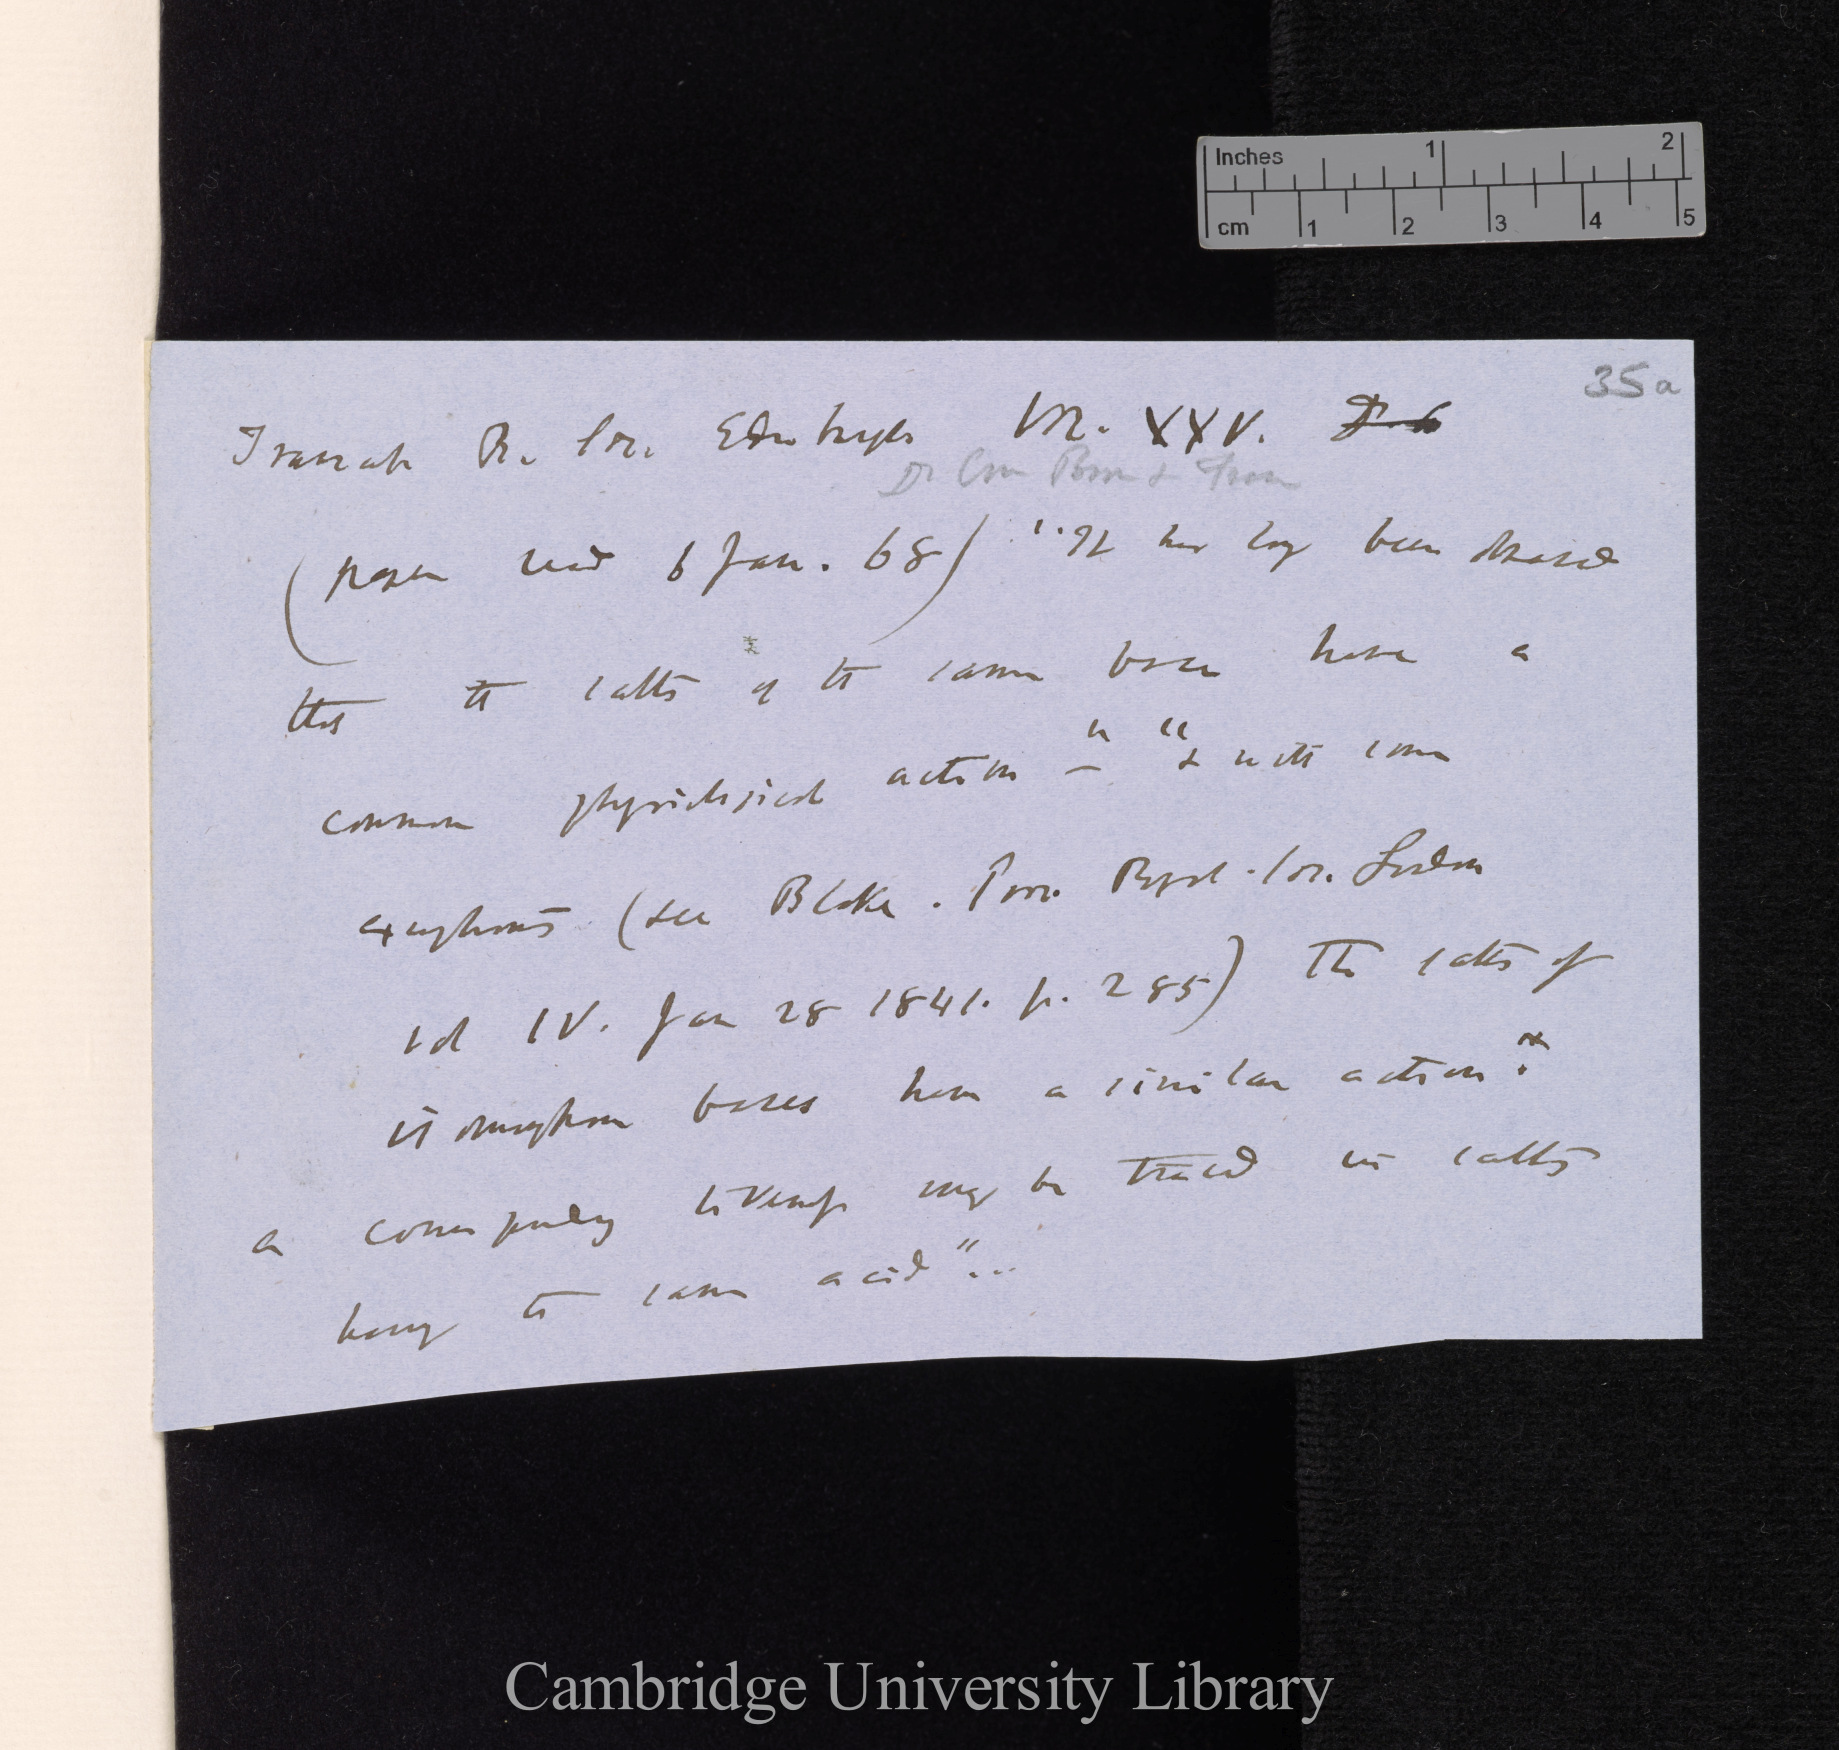 Inches 1 2
cm 1 2 3 4 5
35a
Transact R. Soc. Edinburgh Vol. XXV.
Dr Crum Brown & Fraser
(paper read 6 Jan. 68) "It has long been observed
that the salts of the same base have a
common physiological action —" "& with some
exceptions (see Blake. Proc. Royal. Soc. London
vol IV. Jan 28 1841. p. 285) The salts of
isomorphous bases have a similar action.
a corresponding may be traced in salts
having the same acid"...
Cambridge University Library